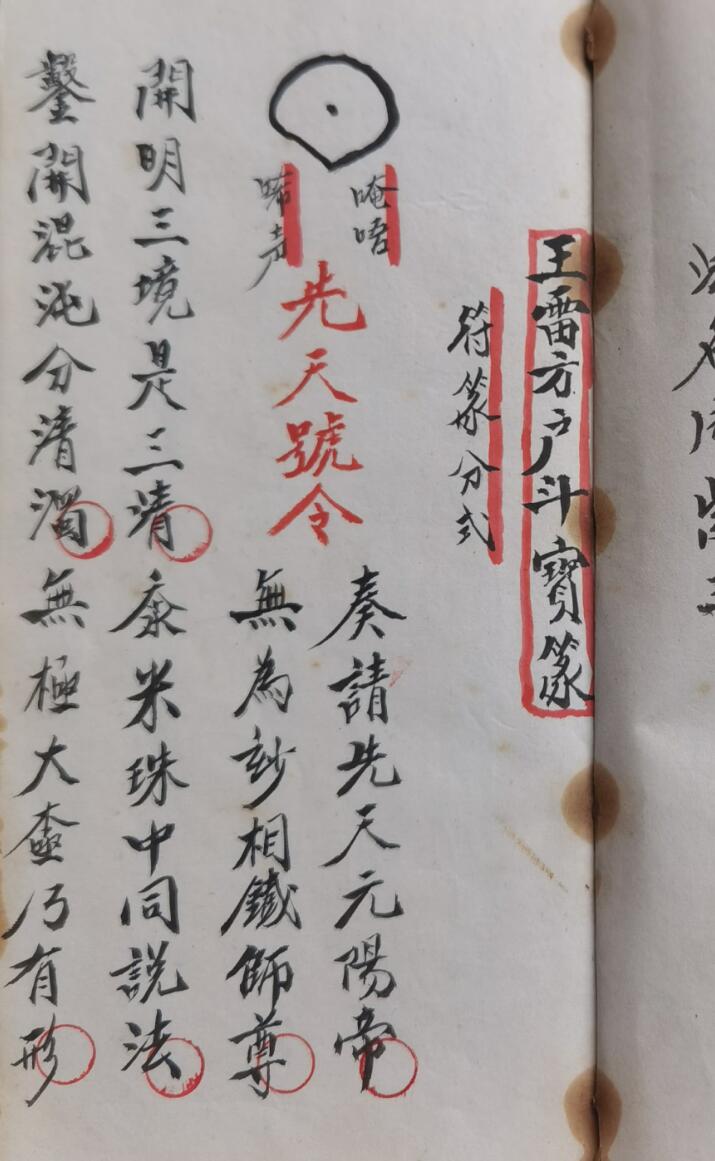 王雷方户斗寶篆
符篆分式
唵唔
唏声
先天號令
奏請先天元陽帝
無為玅相鐵師尊
開明三境是三清
黍米珠中同說法
鑿開混沌分清濁
無極大壺乃有形